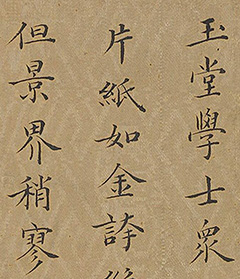 玉堂學士衆
片紙如金誇
但景界稍寥